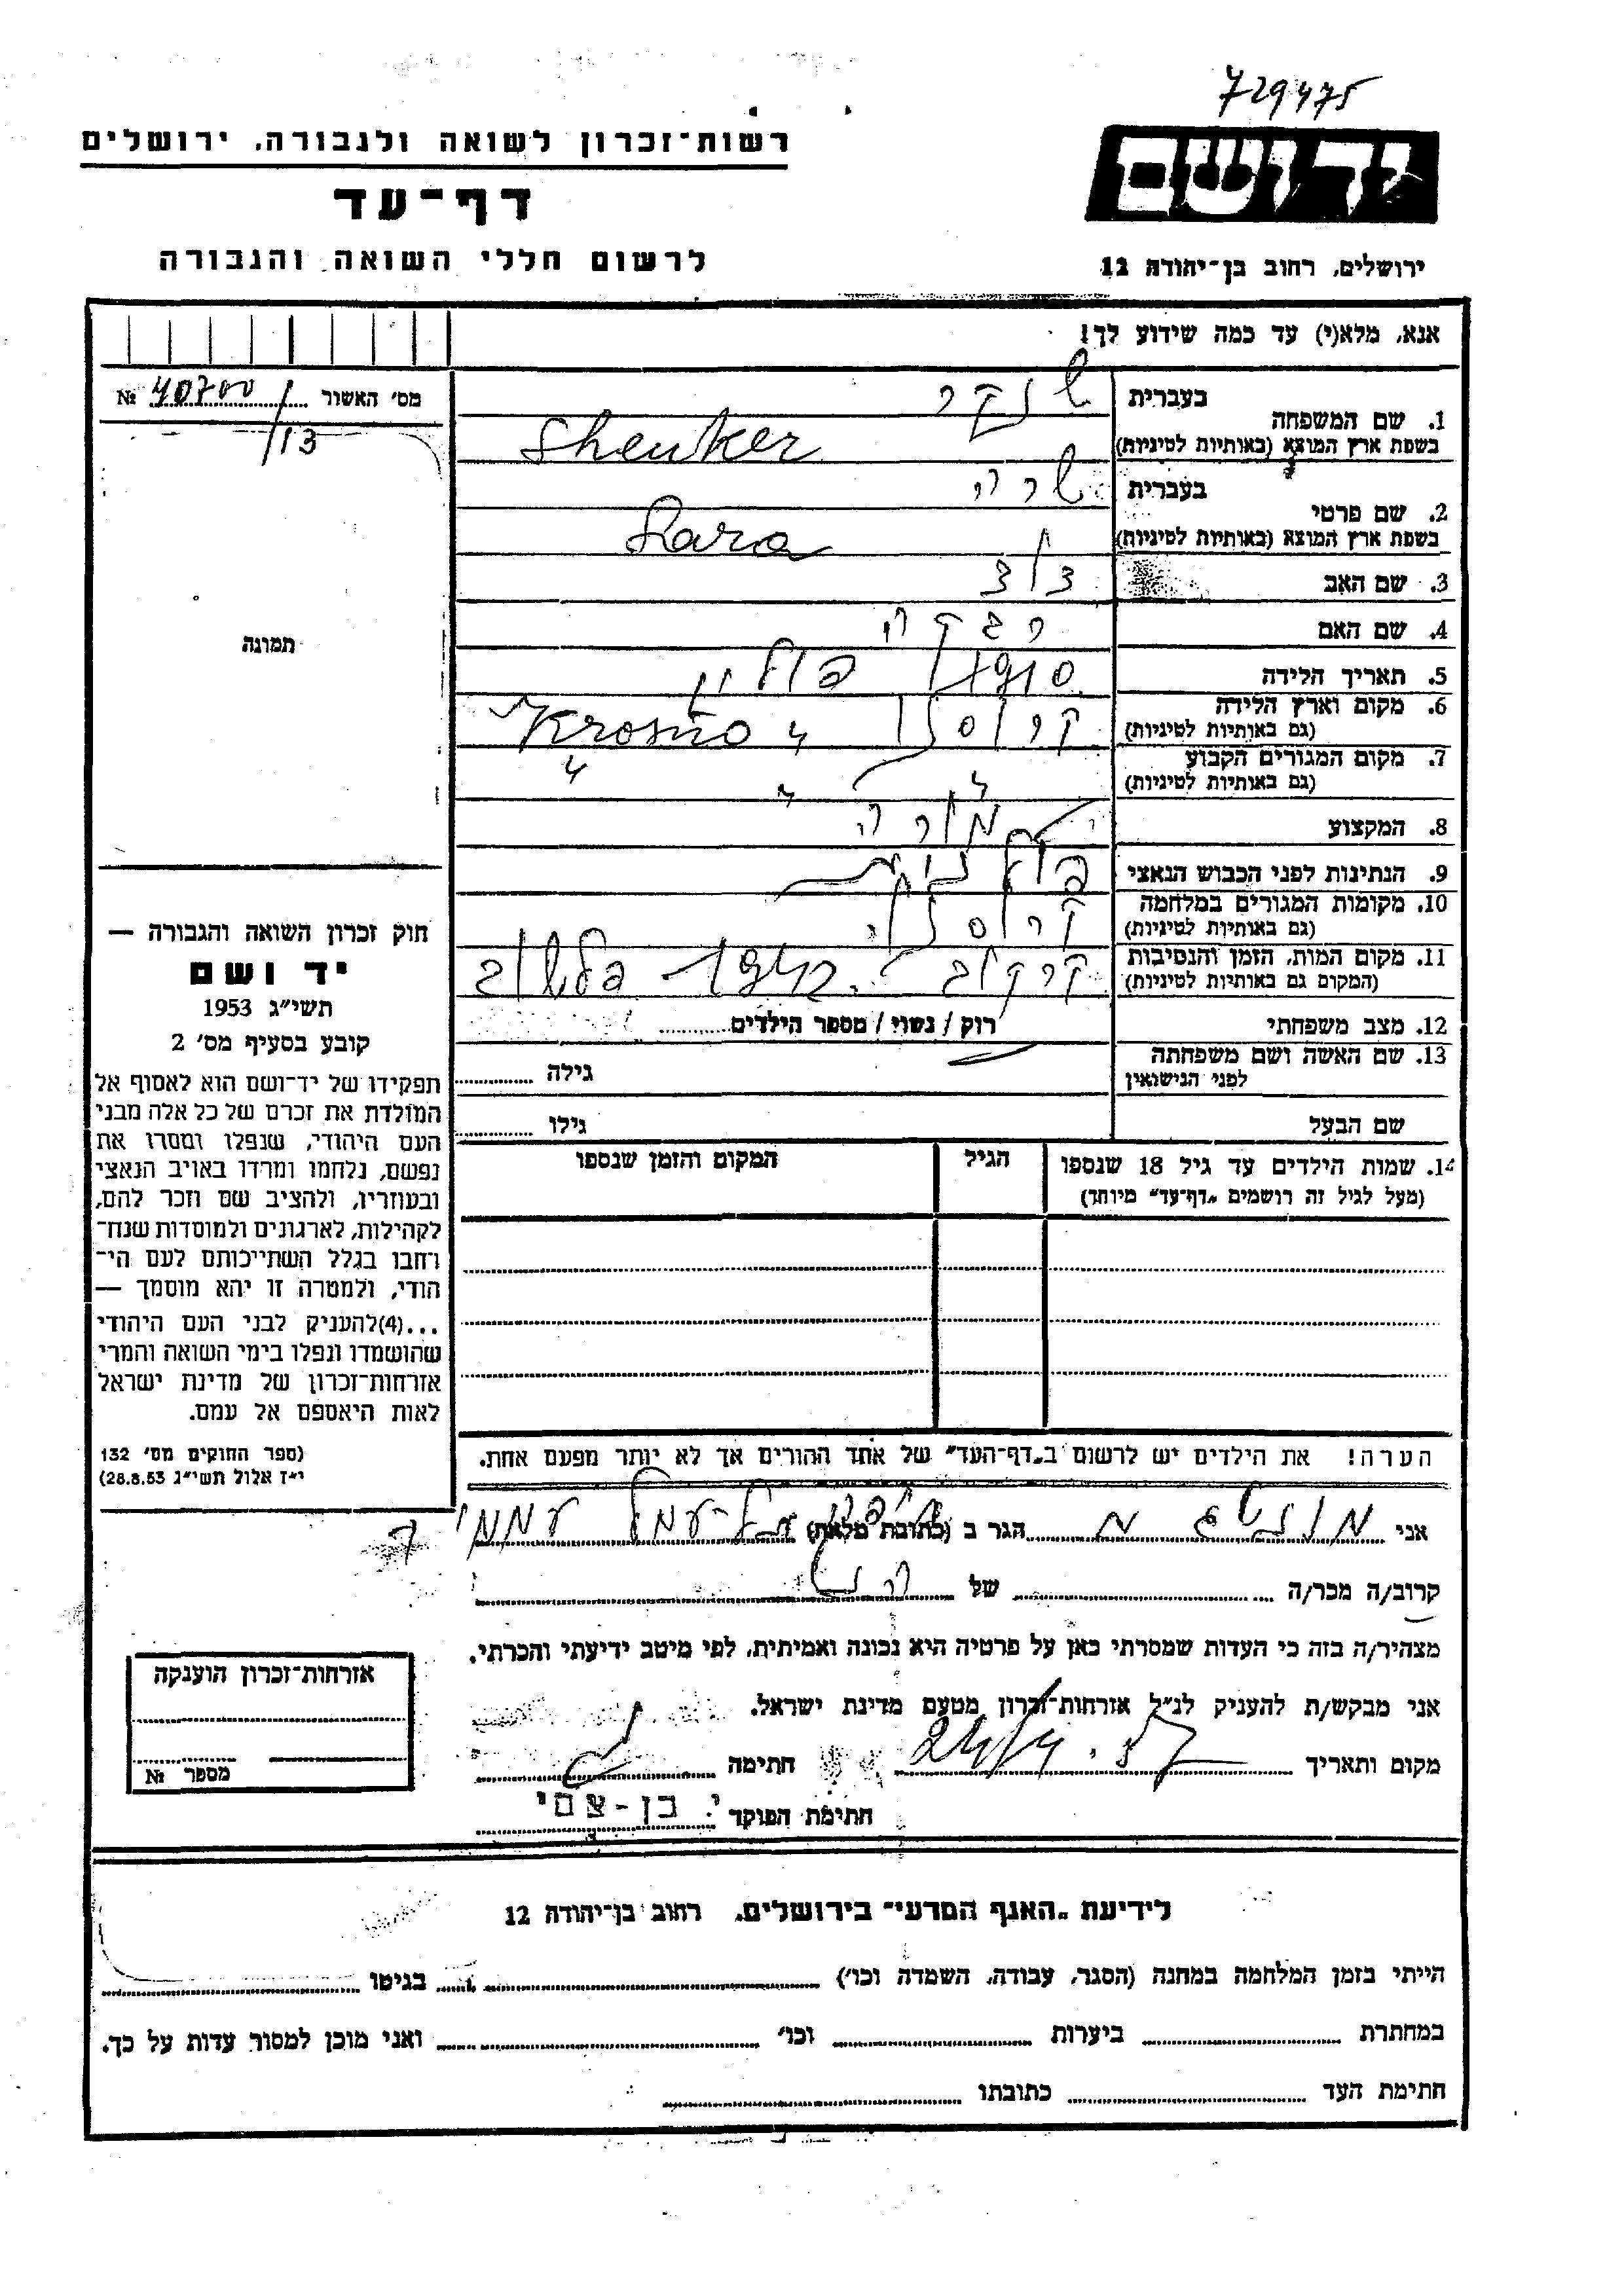 729475
רשות־זכרון לשואה ולגבורה, ירושלים
יד ושם
דף־עד
לרשום חללי השואה והגבורה
ירושלים, רחוב בן־יהודה 12
אנא, מלא(י) עד כמה שידוע לך!
מס' האשור 40700 №
/13
תמונה
1. שם המשפחה
בעברית שנקר
בשפת ארץ המוצא (באותיות לטיניות) Shenker
2. שם פרטי
בעברית שרה
בשפת ארץ המוצא (באותיות לטיניות) Sara
3. שם האב
4. שם האם רבקה
5. תאריך הלידה פולין
6. מקום וארץ הלידה
(גם באותיות לטיניות) Krosno
7. מקום המגורים הקבוע
(גם באותיות לטיניות)
8. המקצוע מורה
9. הנתינות לפני הכבוש הנאצי
10. מקומות המגורים במלחמה
(גם באותיות לטיניות)
11. מקום המות, הזמן והנסיבות
(המקום גם באותיות לטיניות) קרקוב פלשוב
12. מצב משפחתי רוק / נשוי / מספר הילדים
13. שם האשה ושם משפחתה
לפני הנישואין גילה
שם הבעל גילו
14. שמות הילדים עד גיל 18 שנספו
(מעל לגיל זה רושמים „דף־עד” מיוחד)
הגיל
המקום והזמן שנספו
הערה! את הילדים יש לרשום ב„דף־העד” של אחד ההורים אך לא יותר מפעם אחת.
חוק זכרון השואה והגבורה —
יד ושם
תשי״ג 1953
קובע בסעיף מס' 2
תפקידו של יד־ושם הוא לאסוף אל
המולדת את זכרם של כל אלה מבני
העם היהודי, שנפלו ומסרו את
נפשם, נלחמו ומרדו באויב הנאצי
ובעוזריו, ולהציב שם וזכר להם,
לקהילות, לארגונים ולמוסדות שנח־
רחבו בגלל השתייכותם לעם הי־
הודי, ולמטרה זו יהא מוסמך —
...(4)להעניק לבני העם היהודי
שהושמדו ונפלו בימי השואה והמרי
אזרחות־זכרון של מדינת ישראל
לאות היאספם אל עמם.
(ספר החוקים מס' 132
י״ז אלול תשי״ג 28.8.53)
אני הגר ב (כתובת מלאה) 7
קרוב/ה מכר/ה של
מצהיר/ה בזה כי העדות שמסרתי כאן על פרטיה היא נכונה ואמיתית, לפי מיטב ידיעתי והכרתי.
אני מבקש/ת להעניק לנ״ל אזרחות־זכרון מטעם מדינת ישראל.
מקום ותאריך 24/4.57 חתימה
חתימת הפוקד
אזרחות־זכרון הוענקה
מספר №
לידיעת „האנף המדעי” בירושלים, רחוב בן־יהודה 12
הייתי בזמן המלחמה במחנה (הסגר, עבודה, השמדה וכו') בגיטו
במחתרת ביערות וכו' ואני מוכן למסור עדות על כך.
חתימת העד כתובתו